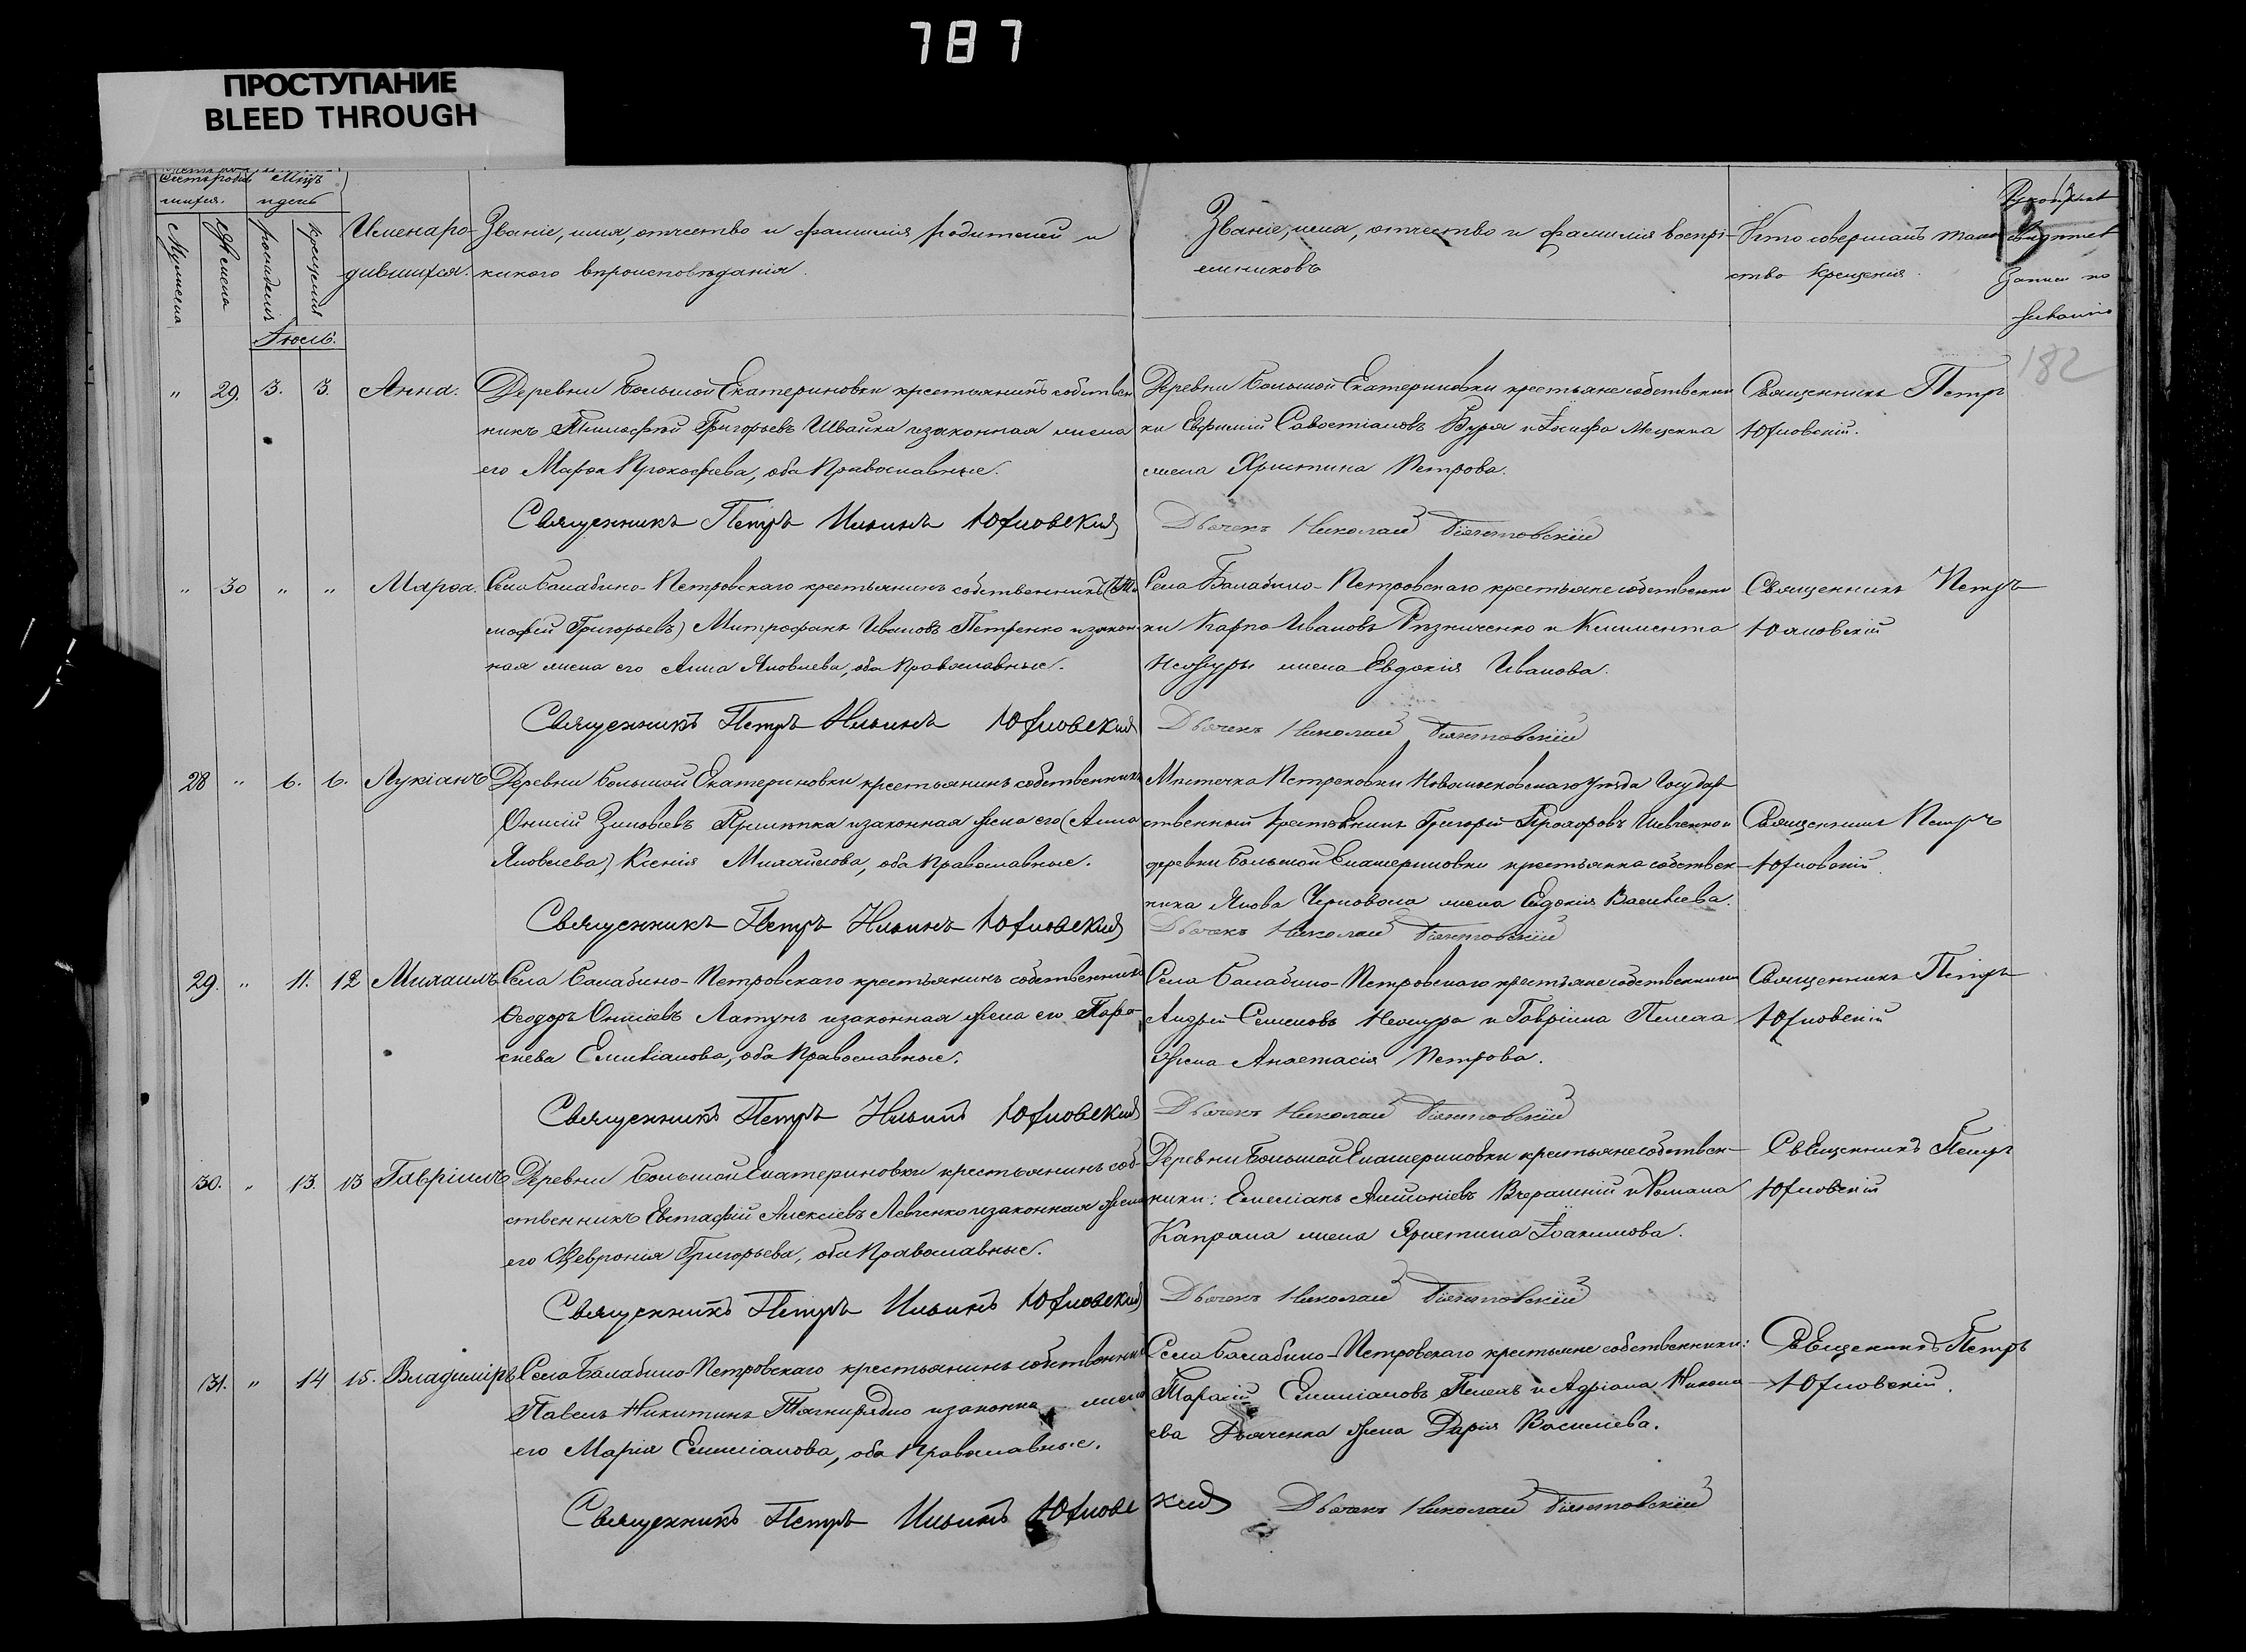 787
ПРОСТУПАНИЕ
BLEED THROUGH
Счетъ родив Мѣцъ
шихся. и день
Мужеска
Женска
рожденія
крещенія
Именаро-
дившихся.
Званіе, имя, отчество и фамилія родителей и
какого вѣроисповѣданія.
Званіе, имя, отчество и фамилія воспрі-
емниковъ
Кто совершалъ таин
ство крещенія.
Рукоприкл
Записи по
желанію
Іюль.
182
" 29. 3. 3. Анна.
Деревни Большой Екатериновки крестьянинъ собствен
никъ Тимофѣй Григорьевъ Швайка и законная жена
его Марѳа Прокофіева, оба Православные.
Священникъ Петръ Ильинъ Юхновскій
Деревни Большой Екатериновки крестьяне собственни
ки Евфимій Савостіановъ Буря и Іосифа
жена Христина Петрова.
Дьячекъ Николай
Священникъ Петръ
Юхновскій.
" 30 " " Марѳа.
Села Балабино-Петровскаго крестьянинъ собственникъ (Ти
мофей Григорьевъ) Митрофанъ Ивановъ Петренко и закон-
ная жена его Анна Яковлева, оба Православные.
Священникъ Петръ Ильинъ Юхновскій
Села Балабино-Петровскаго крестьяне собственни
ки Карпо Ивановъ Рѣзниченко и Климента
жена Евдокія Иванова.
Дьячекъ Николай
Священникъ Петръ
Юхновскій
28 " 6. 6. Лукіанъ
Деревни Большой Екатериновки крестьянинъ собственникъ
Онисій Зиновіевъ и законная жена его (Анна
Яковлева) Ксенія Михайлова, оба Православные.
Священникъ Петръ Ильинъ Юхновскій
Мѣстечка Петриковки Новомосковскаго уѣзда Государ
ственный крестьянинъ Григорій Прохоровъ Шевченко и
деревни Большой Екатериновки крестьянина собствен-
ника Якова Черновола жена Евдокія Василіева.
Дьячекъ Николай
Священникъ Петръ
Юхновскій.
29. " 11. 12 Михаилъ
Села Балабино-Петровскаго крестьянинъ собственникъ
Ѳеодоръ Онисіевъ Латунъ и законная жена его Пара-
скева Емиліанова, оба Православные.
Священникъ Петръ Ильинъ Юхновскій
Села Балабино-Петровскаго крестьяне собственники
Андрей Семеновъ и Гавріила Пелеха
жена Анастасія Петрова.
Дьячекъ Николай
Священникъ Петръ
Юхновскій
30. " 13. 13 Гавріилъ
Деревни Большой Екатериновки крестьянинъ соб-
ственникъ Евстафій Алексіевъ Левченко и законная жена
его Февронія Григорьева, оба Православные.
Священникъ Петръ Ильинъ Юхновскій
Деревни Большой Екатериновки крестьяне собствен-
ники: Емеліанъ Вчерашній и Романа
Капрана жена Христина Іоакимова.
Дьячекъ Николай
Священникъ Петръ
Юхновскій
31. " 14 15. Владиміръ
Села Балабино-Петровскаго крестьянинъ собственникъ
Павелъ Никитинъ Тягнирядно и законна жена
его Марія Емиліанова, оба Православные.
Священникъ Петръ Ильинъ Юхновскій
Села Балабино-Петровскаго крестьяне собственники:
Тарасій Емиліановъ Пелехъ и Адріана Никола-
ева Дьяченка жена Дарія Василіева.
Дьячекъ Николай
Священникъ Петръ
Юхновскій.